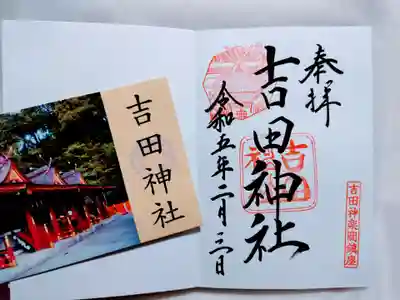 奉拝
吉田神社
令和五年二月三日
吉田神社
吉田神楽岡鎮座
吉田神社